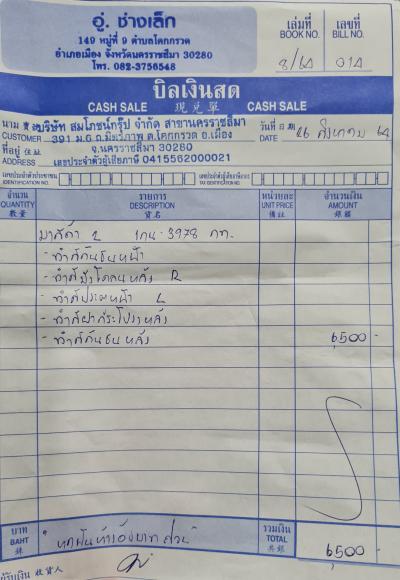 อู่. ช่างเล็ก
149 หมู่ที่ 9 ตำบลโคกกรวด
อำเภอเมือง จังหวัดนครราชสีมา 30280
โทร. 082-3756548
เล่มที่ BOOK NO. 8/64
เลขที่ BILL NO. 014
บิลเงินสด
CASH SALE 現兌單 CASH SALE
นาม CUSTOMER บริษัท สมโภชน์กรุ๊ป จำกัด สาขานครราชสีมา
วันที่ 日期 DATE 26 สิงหาคม 64
391 ม.6 ถ.มิตรภาพ ต.โคกกรวด อ.เมือง
ที่อยู่ 住址 ADDRESS จ.นครราชสีมา 30280
เลขประจำตัวผู้เสียภาษี 0415562000021
เลขประจำตัวประชาชน IDENTIFICATION NO.
เลขประจำตัวผู้เสียภาษี TAX IDENTIFICATION NO.
จำนวน QUANTITY 數量
รายการ DESCRIPTION 貨名
หน่วยละ UNIT PRICE 備註
จำนวนเงิน AMOUNT 銀額
มาสด้า 2 1กน-3978 กท.
- ทำสีกันชนหน้า
- ทำสีบังโคลนหลัง R
- ทำสีประตูหน้า L
- ทำสีฝากระโปรงหลัง
- ทำสีกันชนหลัง 6,500 -
บาท BAHT 銖
หกพันห้าร้อยบาทถ้วน
รวมเงิน TOTAL 共銀
6,500 -
ผู้รับเงิน 收貨人